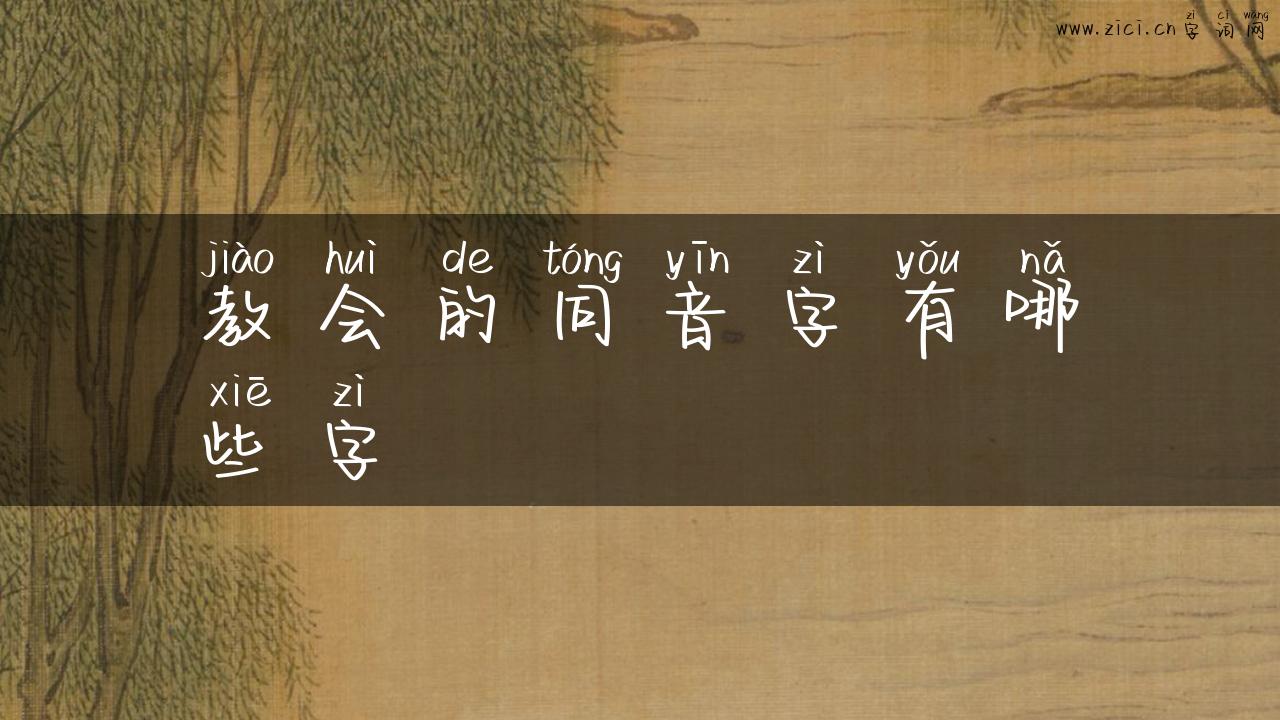 zì cí wǎng
www.zici.cn 字词网
jiào huì de tóng yīn zì yǒu nǎ
教会的同音字有哪
xiē zì
些字